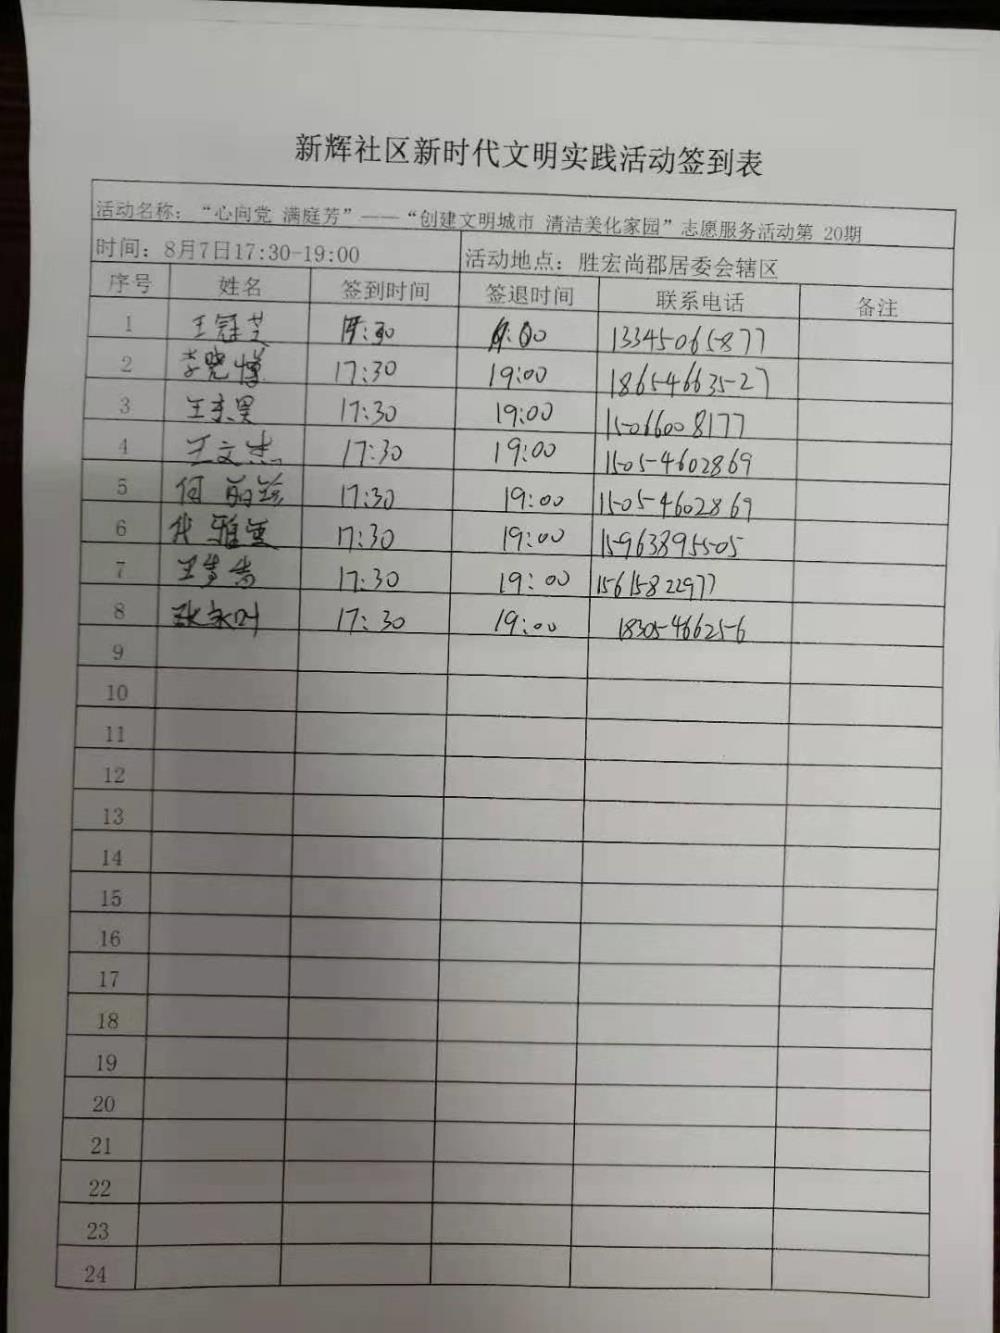 新辉社区新时代文明实践活动签到表
活动名称：“心向党 满庭芳”——“创建文明城市 清洁美化家园”志愿服务活动第 20期
时间：8月7日17:30-19:00 活动地点：胜宏尚郡居委会辖区
序号 姓名 签到时间 签退时间 联系电话 备注
1 王冠芝 17:30 13345065877
2 李晓博 17:30 19:00 18654663527
3 17:30 19:00 15066008177
4 王文杰 17:30 19:00 15054602869
5 何 17:30 19:00 15054602869
6 代雅 17:30 19:00 15963895505
7 17:30 19:00 15615822977
8 17:30 19:00 18305466256
9
10
11
12
13
14
15
16
17
18
19
20
21
22
23
24